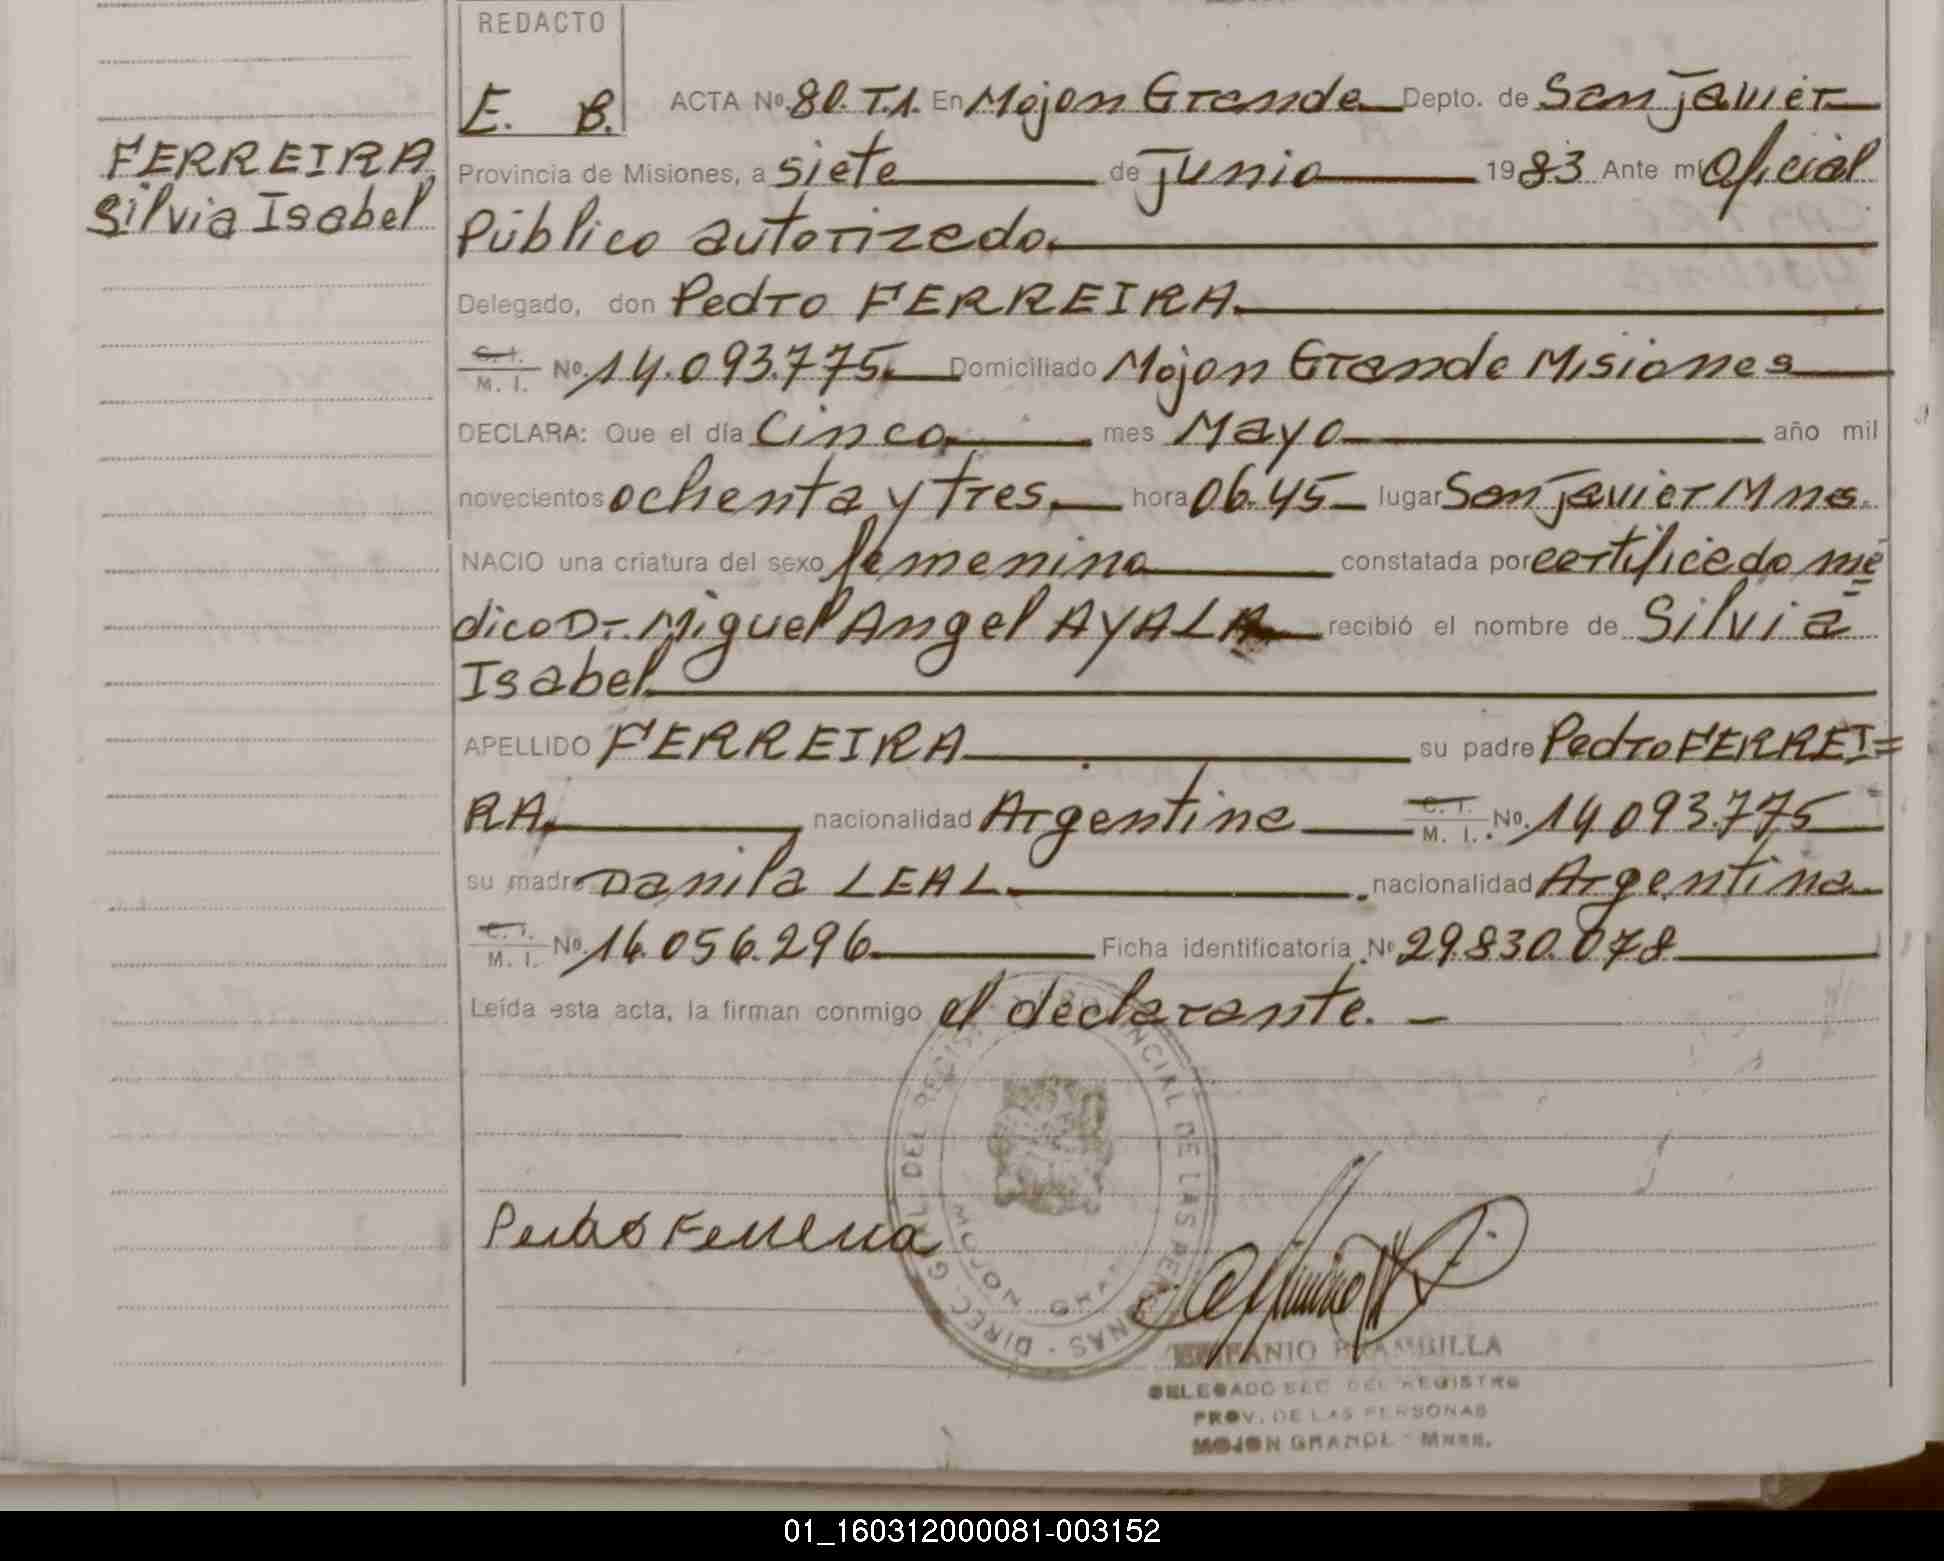 REDACTO
E. B.
ACTA Nº 80. T.1. En Mojon Grande Depto. de San Javier
FERREIRA
Silvia Isabel
Provincia de Misiones, a siete de junio 1983 Ante mí Oficial
Público autorizado.
Delegado, don Pedro FERREIRA.
C. I.
M. I. Nº 14.093.775. Domiciliado Mojon Grande Misiones
DECLARA: Que el día Cinco mes Mayo año mil
novecientos ochenta y tres. hora 06.45 lugar San Javier Mnes.
NACIO una criatura del sexo femenino constatada por certificado mé=
dico Dr. Miguel Angel AYALA recibió el nombre de Silvia
Isabel.
APELLIDO FERREIRA su padre Pedro FERREI=
RA. nacionalidad Argentina C. I.
M. I. Nº 14.093.775
su madre Danila LEAL. nacionalidad Argentina
C. I.
M. I. Nº 16.056.296 Ficha identificatoria Nº 29.830.078
Leída esta acta, la firman conmigo el declarante. —
Pedro Ferreira
DIREC. GRAL. DEL REGIS. PROVINCIAL DE LAS PERSONAS
MOJON GRANDE
BRAMBILLA
DELEGADO SEC. DEL REGISTRO
PROV. DE LAS PERSONAS
MOJON GRANDE - Mnes.
01_160312000081-003152